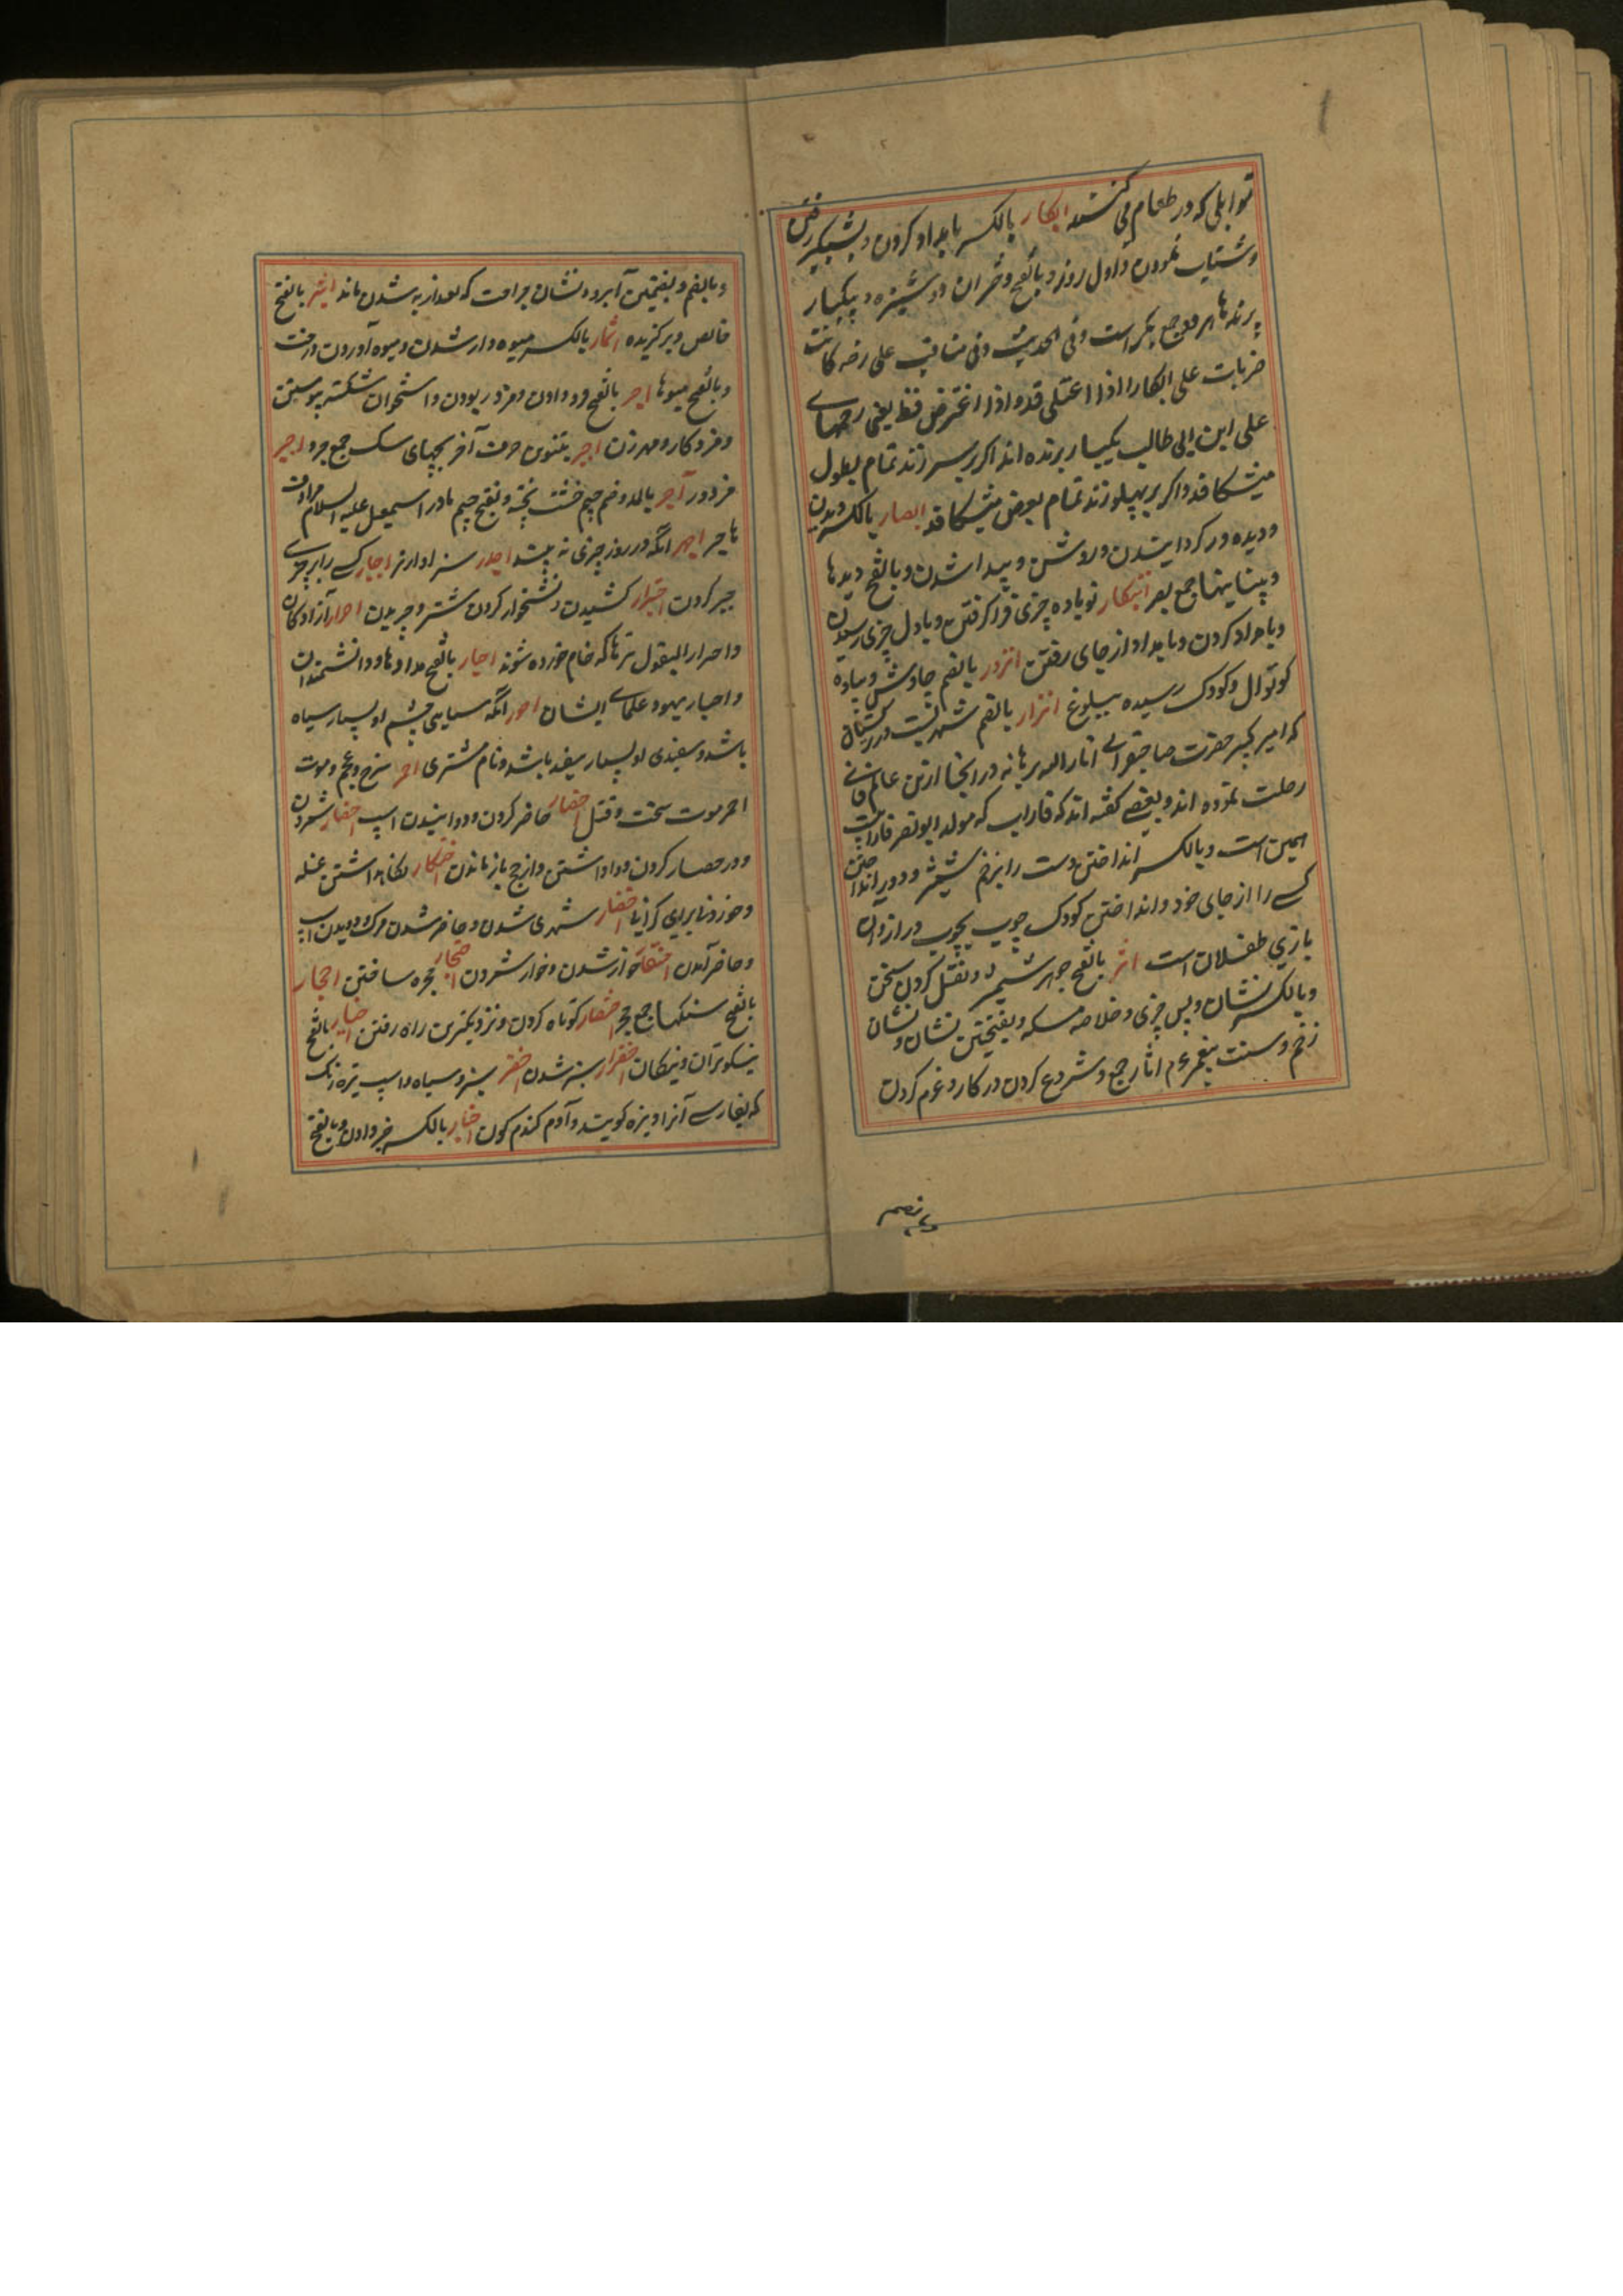 توابلی که در طعام می کنند ابکار بالکسر بامداد کردن و شبگیر رفتن
و شتاب نمودن و اول روز و بالفتح دختران دوشیزه و بیکبار
برنده ها هر دو جمع بکر است و فی الحدیث و فی مناقب علی رضه کانت
ضربات علی ابکارا اذا اعتلی قد و اذا اعترض قط یعنی زخمهای
علی ابن ابی طالب یکبار برنده اند اگر بر سر زند تمام بطول
میشکافد و اگر بر پهلو زند تمام بعرض میشکافد ابصار بالکسر دیدن
و دیده ور گردانیدن و روشن و پیدا شدن و بالفتح دیدها
و بیناییها جمع بصر ابتکار نوباوه چیزی فرا گرفتن و باول چیزی رسیدن
و بامداد کردن و بامداد از جای رفتن اترور بالضم چاوش و پیاده
کوتوال و کودک رسیده ببلوغ اترار بالضم شهریست در ترکستان
که امیر کبیر حضرت صاحبقرانی انار الله برهانه در انجا ازین عالم فانی
رحلت نموده اند و بعضی گفته اند که فاراب که مولد ابو نصر فارابیست
همین است و بالکسر انداختن دست را بزخم شمشیر و دور انداختن
کسی را از جای خود و انداختن کودک چوب بچوب دراز و آن
بازی طفلان است اثر بالفتح جوهر شمشیر و نقل کردن سخن
و بالکسر نشان و پس چیزی و خلاصه مسکه و بفتحتین نشان و نشان
زخم و سنت پیغمبر عم اثار جمع و شروع کردن در کار و عزم کردن
و بالضم
و بالضم و بضمتین آبرو و نشان جراحت که بعد از به شدن ماند اثیر بالفتح
خالص و برگزیده اثمار بالکسر میوه دار شدن و میوه آوردن درخت
و بالفتح میوها اجر بالفتح مزد دادن و مزدور بودن و استخوان شکسته پیوستن
و مزد کار و مهر زن اجر بتنوین حرف آخر بچهای سگ جمع جرو اجیر
مزدور آجر بالمد و ضم جیم خشت پخته و بفتح جیم مادر اسمعیل علیه السلام مرادف
هاجر اجهر انکه در روز چیزی نه بیند اجدر سزاوارتر اجبار کسی را بر چیزی
جبر کردن اجترار کشیدن و نشخوار کردن شتر و چریدن احرار آزادگان
و احرار البقول تره ها که خام خورده شوند احبار بالفتح مدادها و دانشمندان
و احبار یهود علمای ایشان احور انکه سیاهی چشم او بسیار سیاه
باشد و سفیدی او بسیار سفید باشد و نام مشتری احمر سرخ و عجم و موت
احمر موت سخت و قتل احضار حاضر کردن و دوانیدن اسپ احصار شمردن
و در حصار کردن و واداشتن و از حج باز ماندن احتکار نگاهداشتن غله
و خوردنیها برای گرانی احتضار شهری شدن و حاضر شدن مرگ و دویدن اسپ
و حاضر آمدن احتقار خوار شدن و خوار شمردن احتجار حجره ساختن احجار
بالفتح سنگها جمع حجر اختصار کوتاه کردن و نزدیکترین راه رفتن اخیار بالفتح
نیکوتران و نیکان اخضرار سبز شدن اخضر سبز و سیاه و اسپ تیره رنگ
که بفارسی آنرا دیزه گویند و آدم گندم گون اخبار بالکسر خبر دادن و بالفتح